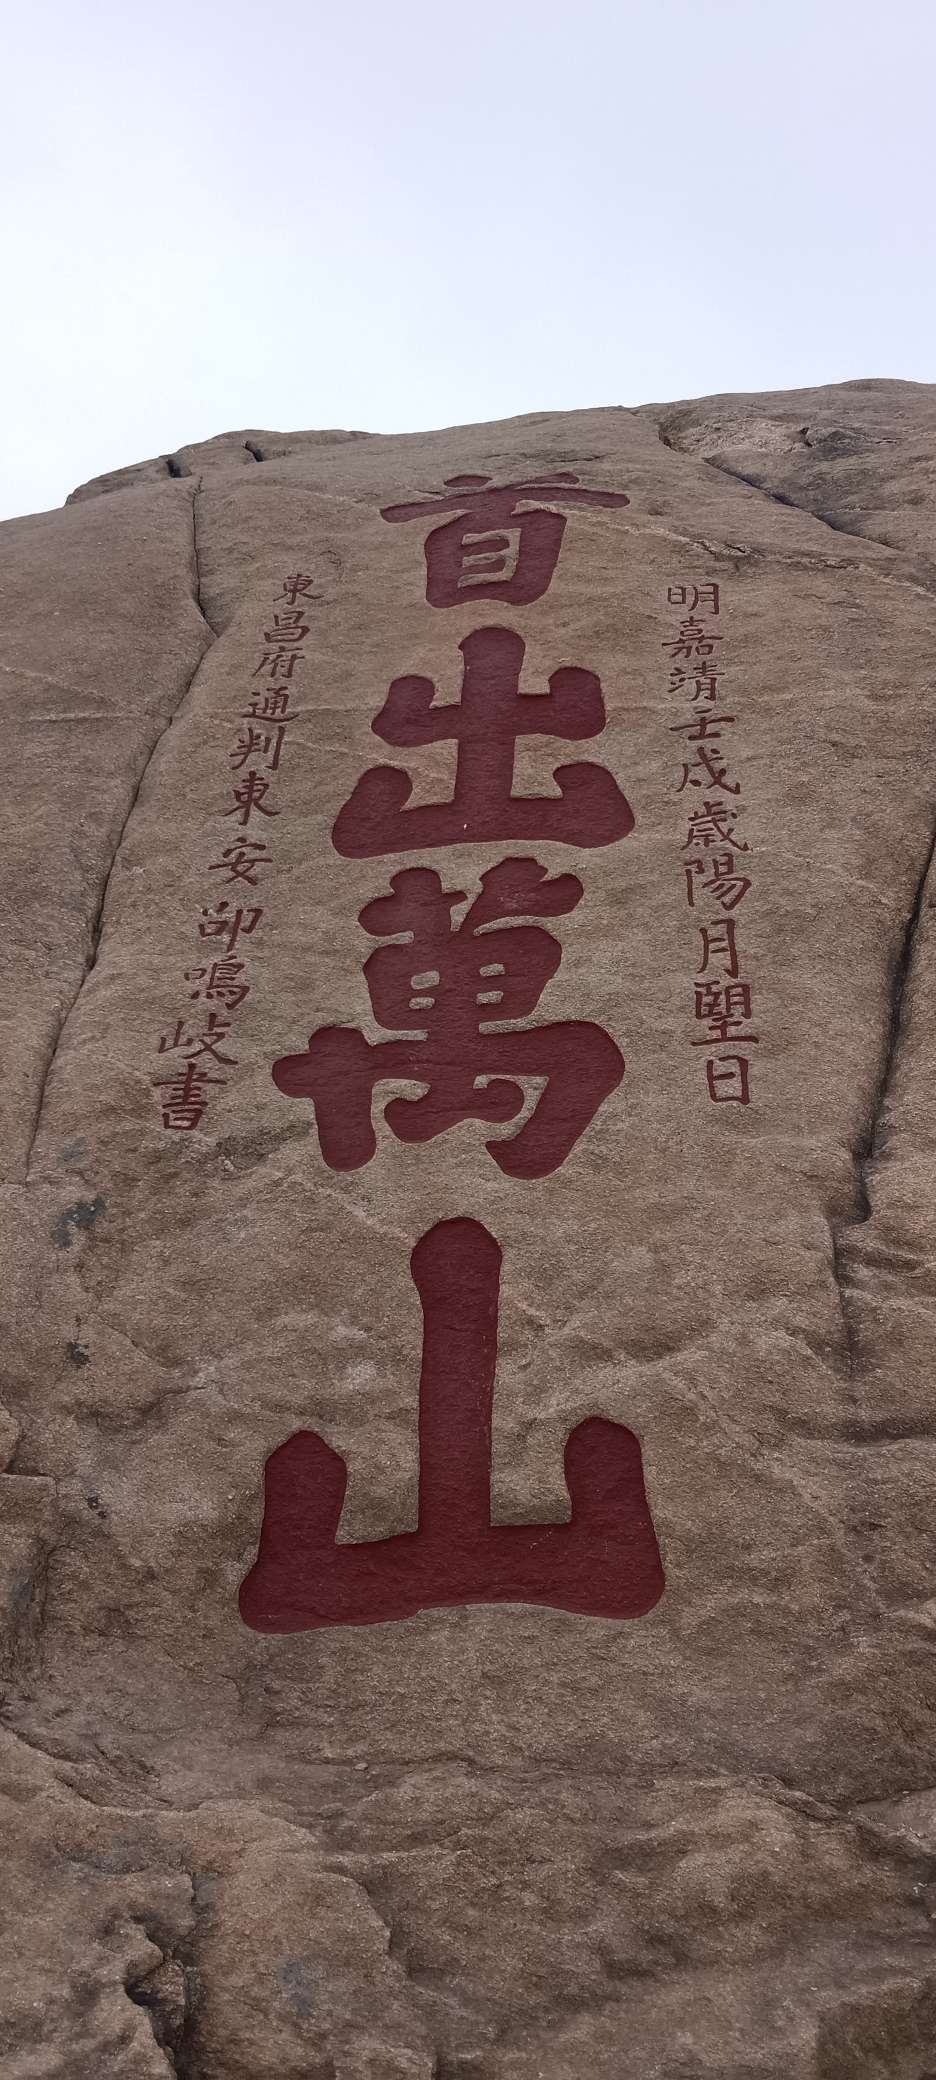 明嘉靖壬戌歲陽月朢日
首出萬山
東昌府通判東安邵鳴岐書